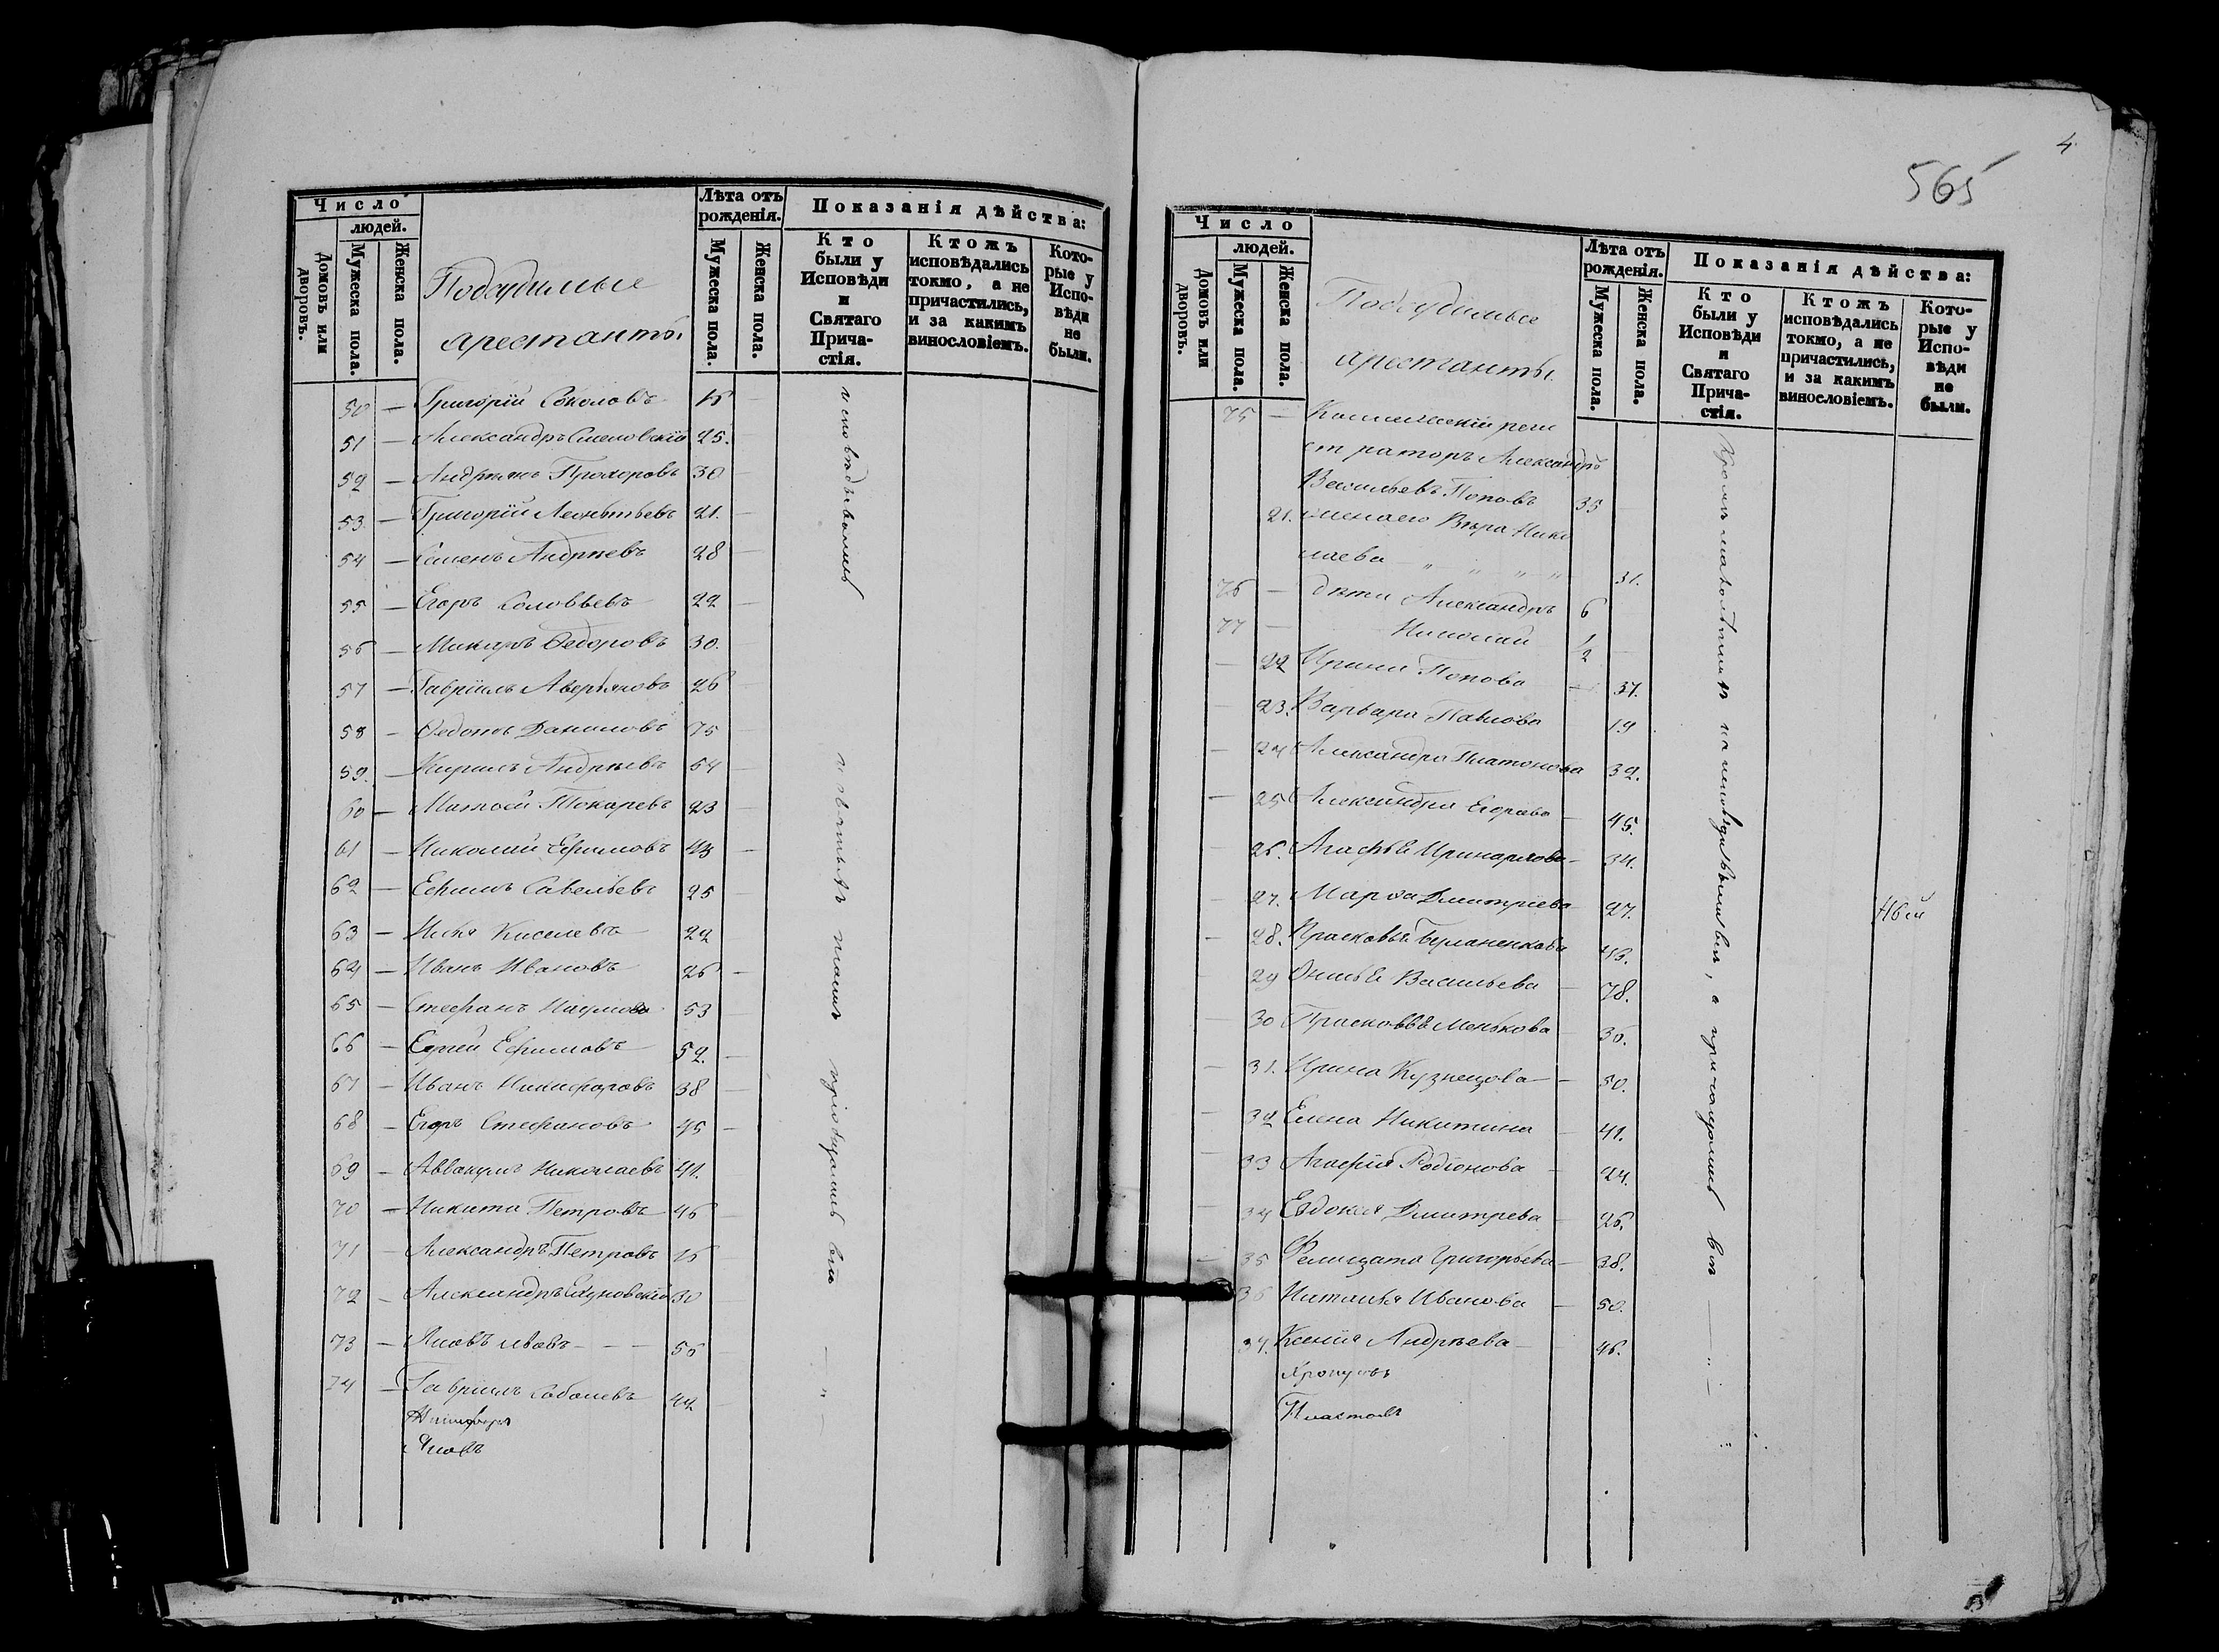 4
565
Число
людей.
Домовъ или дворовъ.
Мужеска пола.
Женска пола.
Подсудимые
арестанты.
Лѣта отъ рожденія.
Мужеска пола.
Женска пола.
Показанія дѣйства:
Кто были у Исповѣди и Святаго Причастія.
Ктожъ исповѣдались токмо, а не причастились, и за какимъ винословіемъ.
Которые у Исповѣди не были.
50 — Григорій Соколовъ
51 — Александръ 25.
52 — Прохоровъ 30
53 — Григорій Леонтьевъ 21.
54 — Семенъ Андреевъ 28
55 — Егоръ Соловьевъ 22
56 — Макаръ Ѳедоровъ 30.
57 — Гавріилъ Аверьяновъ 26
58 — Ѳедотъ Даниловъ 75
59. — Кирилъ Андреевъ 54
60 — Токаревъ 23
61 — Николай Ефимовъ 43
62 — Ефимъ Савельевъ 25
63 — Илья Киселевъ 22
64 — Иванъ Ивановъ 26
65 — Стефанъ Наумовъ 53
66 — Сергей Ефимовъ 52.
67 — Иванъ Никифоровъ 38
68 — Егоръ Стефановъ 45
69 — Аввакумъ Николаевъ 41.
70 — Никита Петровъ 46
71 — Александръ Петровъ
72 — Александръ 30
73 — Яковъ 56
74 — Гавріилъ Соболевъ 42
Яковъ
исповѣдывались
и святыхъ таинъ пріобщались всѣ
Число
людей.
Домовъ или дворовъ.
Мужеска пола.
Женска пола.
Подсудимые
арестанты.
Лѣта отъ рожденія.
Мужеска пола.
Женска пола.
Показанія дѣйства:
Кто были у Исповѣди и Святаго Причастія.
Ктожъ исповѣдались токмо, а не причастились, и за какимъ винословіемъ.
Которые у Исповѣди не были.
75 — Коллежскій реги
страторъ Александръ
Васильевъ Поповъ 35
21. жена его Вѣра Нико
лаева 31.
76 — дѣти Александръ 6
77 — Николай 1/2
— 22 Ирина Попова 37.
23. Варвара Павлова 19
— 24 Александра Платонова 32.
— 25 Александра Егорова 45.
26. Агафья Иринархова 34.
27. Марѳа Дмитріева 27.
— 28. Прасковья 43.
29 Васильева 78.
30 Прасковья Менькова 36.
31. Ирина Кузнецова 50.
32 Елена Никитина 41.
33 Агафія Родіонова 24.
34 Евдокія Дмитрева 26.
35 Фелицата Григорьева 38.
36 Наталья Иванова 50.
37. Ксенія Андреева 46.
Платонъ
кромѣ малолѣтнихъ исповѣдывались, а причащались всѣ